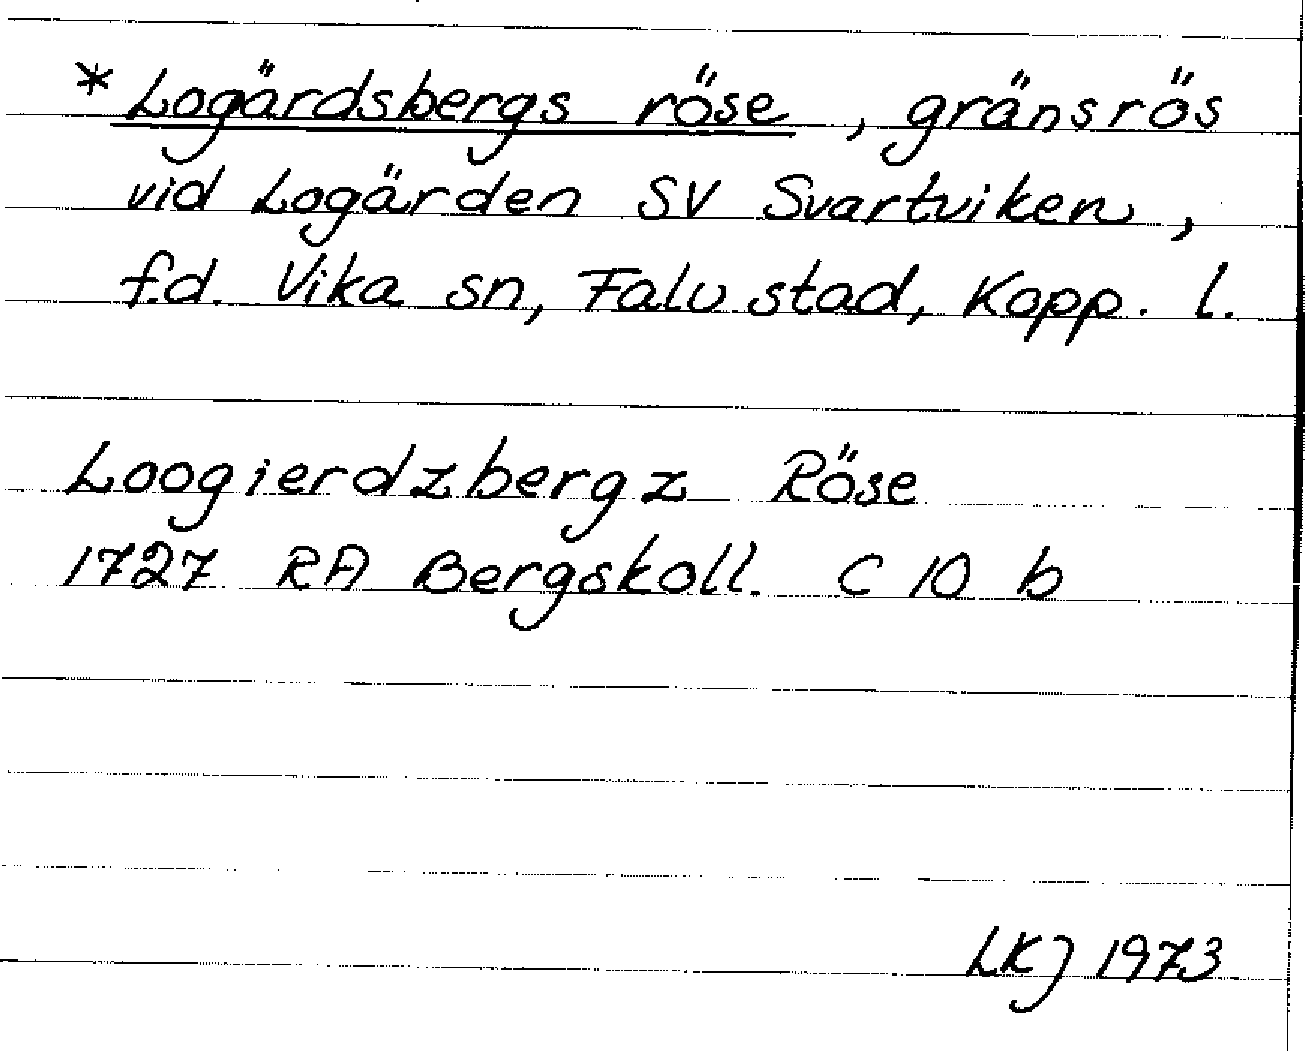 * Logärdsbergs röse, gränsrös
vid Logärden SV Svartviken,
f.d. Vika sn, Falu stad, Kopp. l.
Loogierdzbergz Röse
1727 RA Bergskoll. C 10 b
LKJ 1973